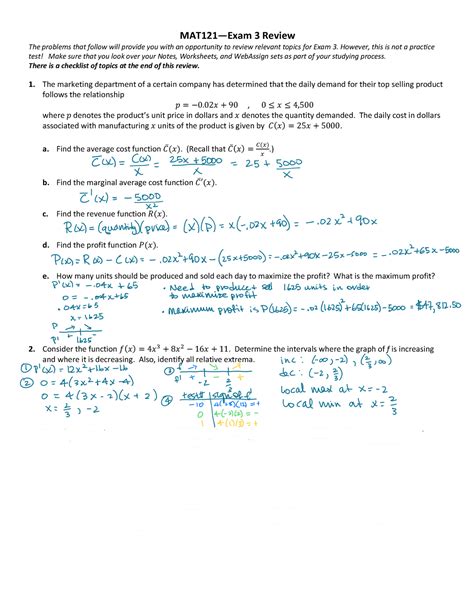 MAT121—Exam 3 Review
The problems that follow will provide you with an opportunity to review relevant topics for Exam 3. However, this is not a practice
test! Make sure that you look over your Notes, Worksheets, and WebAssign sets as part of your studying process.
There is a checklist of topics at the end of this review.
1. The marketing department of a certain company has determined that the daily demand for their top selling product
follows the relationship
p = −0.02x + 90 , 0 ≤ x ≤ 4,500
where p denotes the product's unit price in dollars and x denotes the quantity demanded. The daily cost in dollars
associated with manufacturing x units of the product is given by C(x) = 25x + 5000.
a. Find the average cost function C̄(x). (Recall that C̄(x) = C(x)/x.)
C̄(x) = C(x)/x = 25x + 5000/x = 25 + 5000/x
b. Find the marginal average cost function C̄'(x).
C̄'(x) = −5000/x²
c. Find the revenue function R(x).
R(x) = (quantity)(price) = (x)(p) = x(−.02x+90) = −.02x²+90x
d. Find the profit function P(x).
P(x) = R(x) − C(x) = −.02x²+90x − (25x+5000) = −.02x²+90x−25x−5000 = −.02x²+65x−5000
e. How many units should be produced and sold each day to maximize the profit? What is the maximum profit?
P'(x) = −.04x + 65
0 = −.04x+65
.04x=65
x=1625
P
P' + 1625 −
• Need to produce + sell 1625 units in order
to maximize profit
• Maximum profit is P(1625) = −.02(1625)²+65(1625)−5000 = $47,812.50
2. Consider the function f(x) = 4x³ + 8x² − 16x + 11. Determine the intervals where the graph of f is increasing
and where it is decreasing. Also, identify all relative extrema.
① f'(x) = 12x²+16x−16
② 0 = 4(3x²+4x−4)
0 = 4(3x−2)(x+2)
x = 2/3, −2
③ f
f' + − +
−2 2/3
④ test # sign of f'
−10
0
1
inc: (−∞,−2), (2/3,∞)
dec: (−2, 2/3)
local max at x=−2
local min at x= 2/3